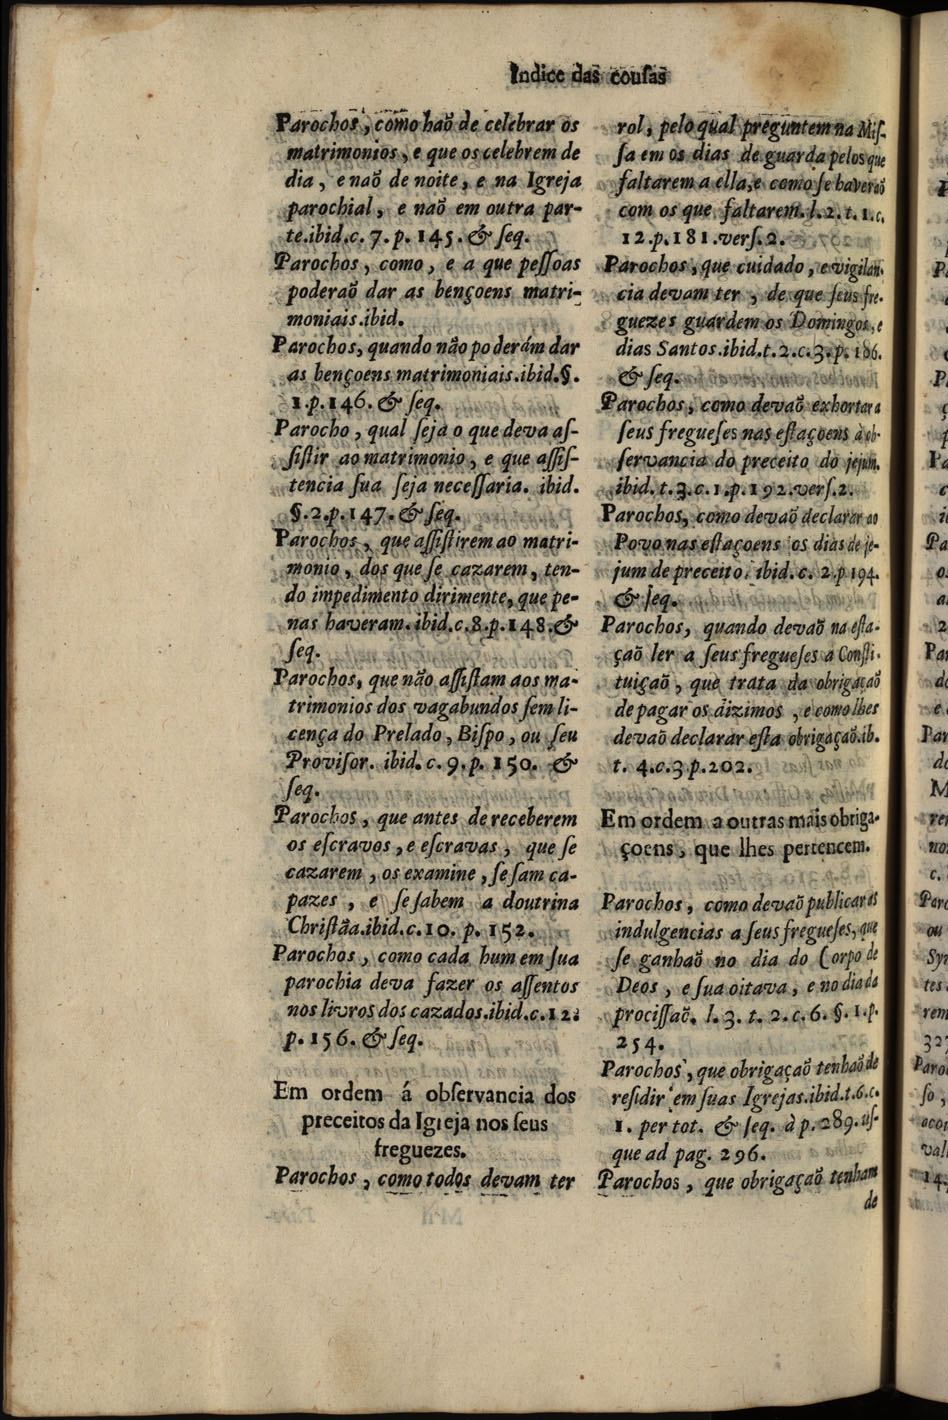 Indice das cousas
Parochos, como haõ de celebrar os
matrimonios, e que os celebrem de
dia, e naõ de noite, e na Igreja
parochial, e naõ em outra par-
te.ibid.c. 7. p. 145. & ſeq.
Parochos, como, e a que peſſoas
poderaõ dar as bençoens matri-
moniais.ibid.
Parochos, quando não poderám dar
as bençoens matrimoniais.ibid.§.
1.p.146. & ſeq.
Parocho, qual ſeja o que deva aſ-
ſiſtir ao matrimonio, e que aſſiſ-
tencia ſua ſeja neceſſaria. ibid.
§.2.p.147.& ſeq.
Parochos, que aſſiſtirem ao matri-
monio, dos que ſe cazarem, ten-
do impedimento dirimente, que pe-
nas haveram.ibid.c.8.p.148.&
ſeq.
Parochos, que não aſſiſtam aos ma-
trimonios dos vagabundos ſem li-
cença do Prelado, Biſpo, ou ſeu
Proviſor. ibid. c. 9. p. 150. &
ſeq.
Parochos, que antes de receberem
os eſcravos, e eſcravas, que ſe
cazarem, os examine, ſe ſam ca-
pazes, e ſe ſabem a doutrina
Chriſtãa.ibid.c.10. p. 152.
Parochos, como cada hum em ſua
parochia deva fazer os aſſentos
nos livros dos cazados.ibid.c.12.
p. 156. & ſeq.
Em ordem á obſervancia dos
preceitos da Igreja nos ſeus
freguezes.
Parochos, como todos devam ter
rol, pelo qual preguntem na Miſ-
ſa em os dias de guarda pelos que
faltarem a ella, e como ſe haveraõ
com os que faltarem. l. 2. t. 1. c.
12.p.181.verſ.2.
Parochos, que cuidado, e vigilan-
cia devam ter, de que ſeus fre-
guezes guardem os Domingos, e
dias Santos.ibid.t.2.c.3.p.186.
& ſeq.
Parochos, como devaõ exhortar a
ſeus fregueſes nas eſtaçoens à ob-
ſervancia do preceito do jejum.
ibid. t. 3. c. 1. p. 192.verſ.2.
Parochos, como devaõ declarar ao
Povo nas eſtaçoens os dias de je-
jum de preceito. ibid. c. 2. p 194.
& ſeq.
Parochos, quando devaõ na eſta-
çaõ ler a ſeus fregueſes a Conſti-
tuiçaõ, que trata da obrigaçaõ
de pagar os dizimos, e como lhes
devaõ declarar eſta obrigaçaõ.ib.
t. 4.c.3 p.202.
Em ordem a outras mais obriga-
çoens, que lhes pertencem.
Parochos, como devaõ publicar as
indulgencias a ſeus fregueſes, que
ſe ganhaõ no dia do Corpo de
Deos, e ſua oitava, e no dia da
prociſſaõ. l. 3. t. 2. c. 6. §. 1. p.
254.
Parochos, que obrigaçaõ tenhaõ de
reſidir em ſuas Igrejas.ibid.t.6.c.
1. per tot. & ſeq. à p. 289. uſ-
que ad pag. 296.
Parochos, que obrigaçaõ tenham
de